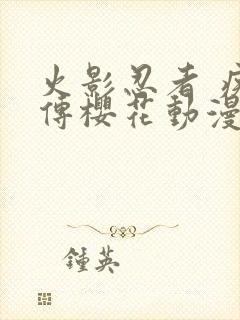 火影忍者 疾
傳櫻花動漫
鍾英